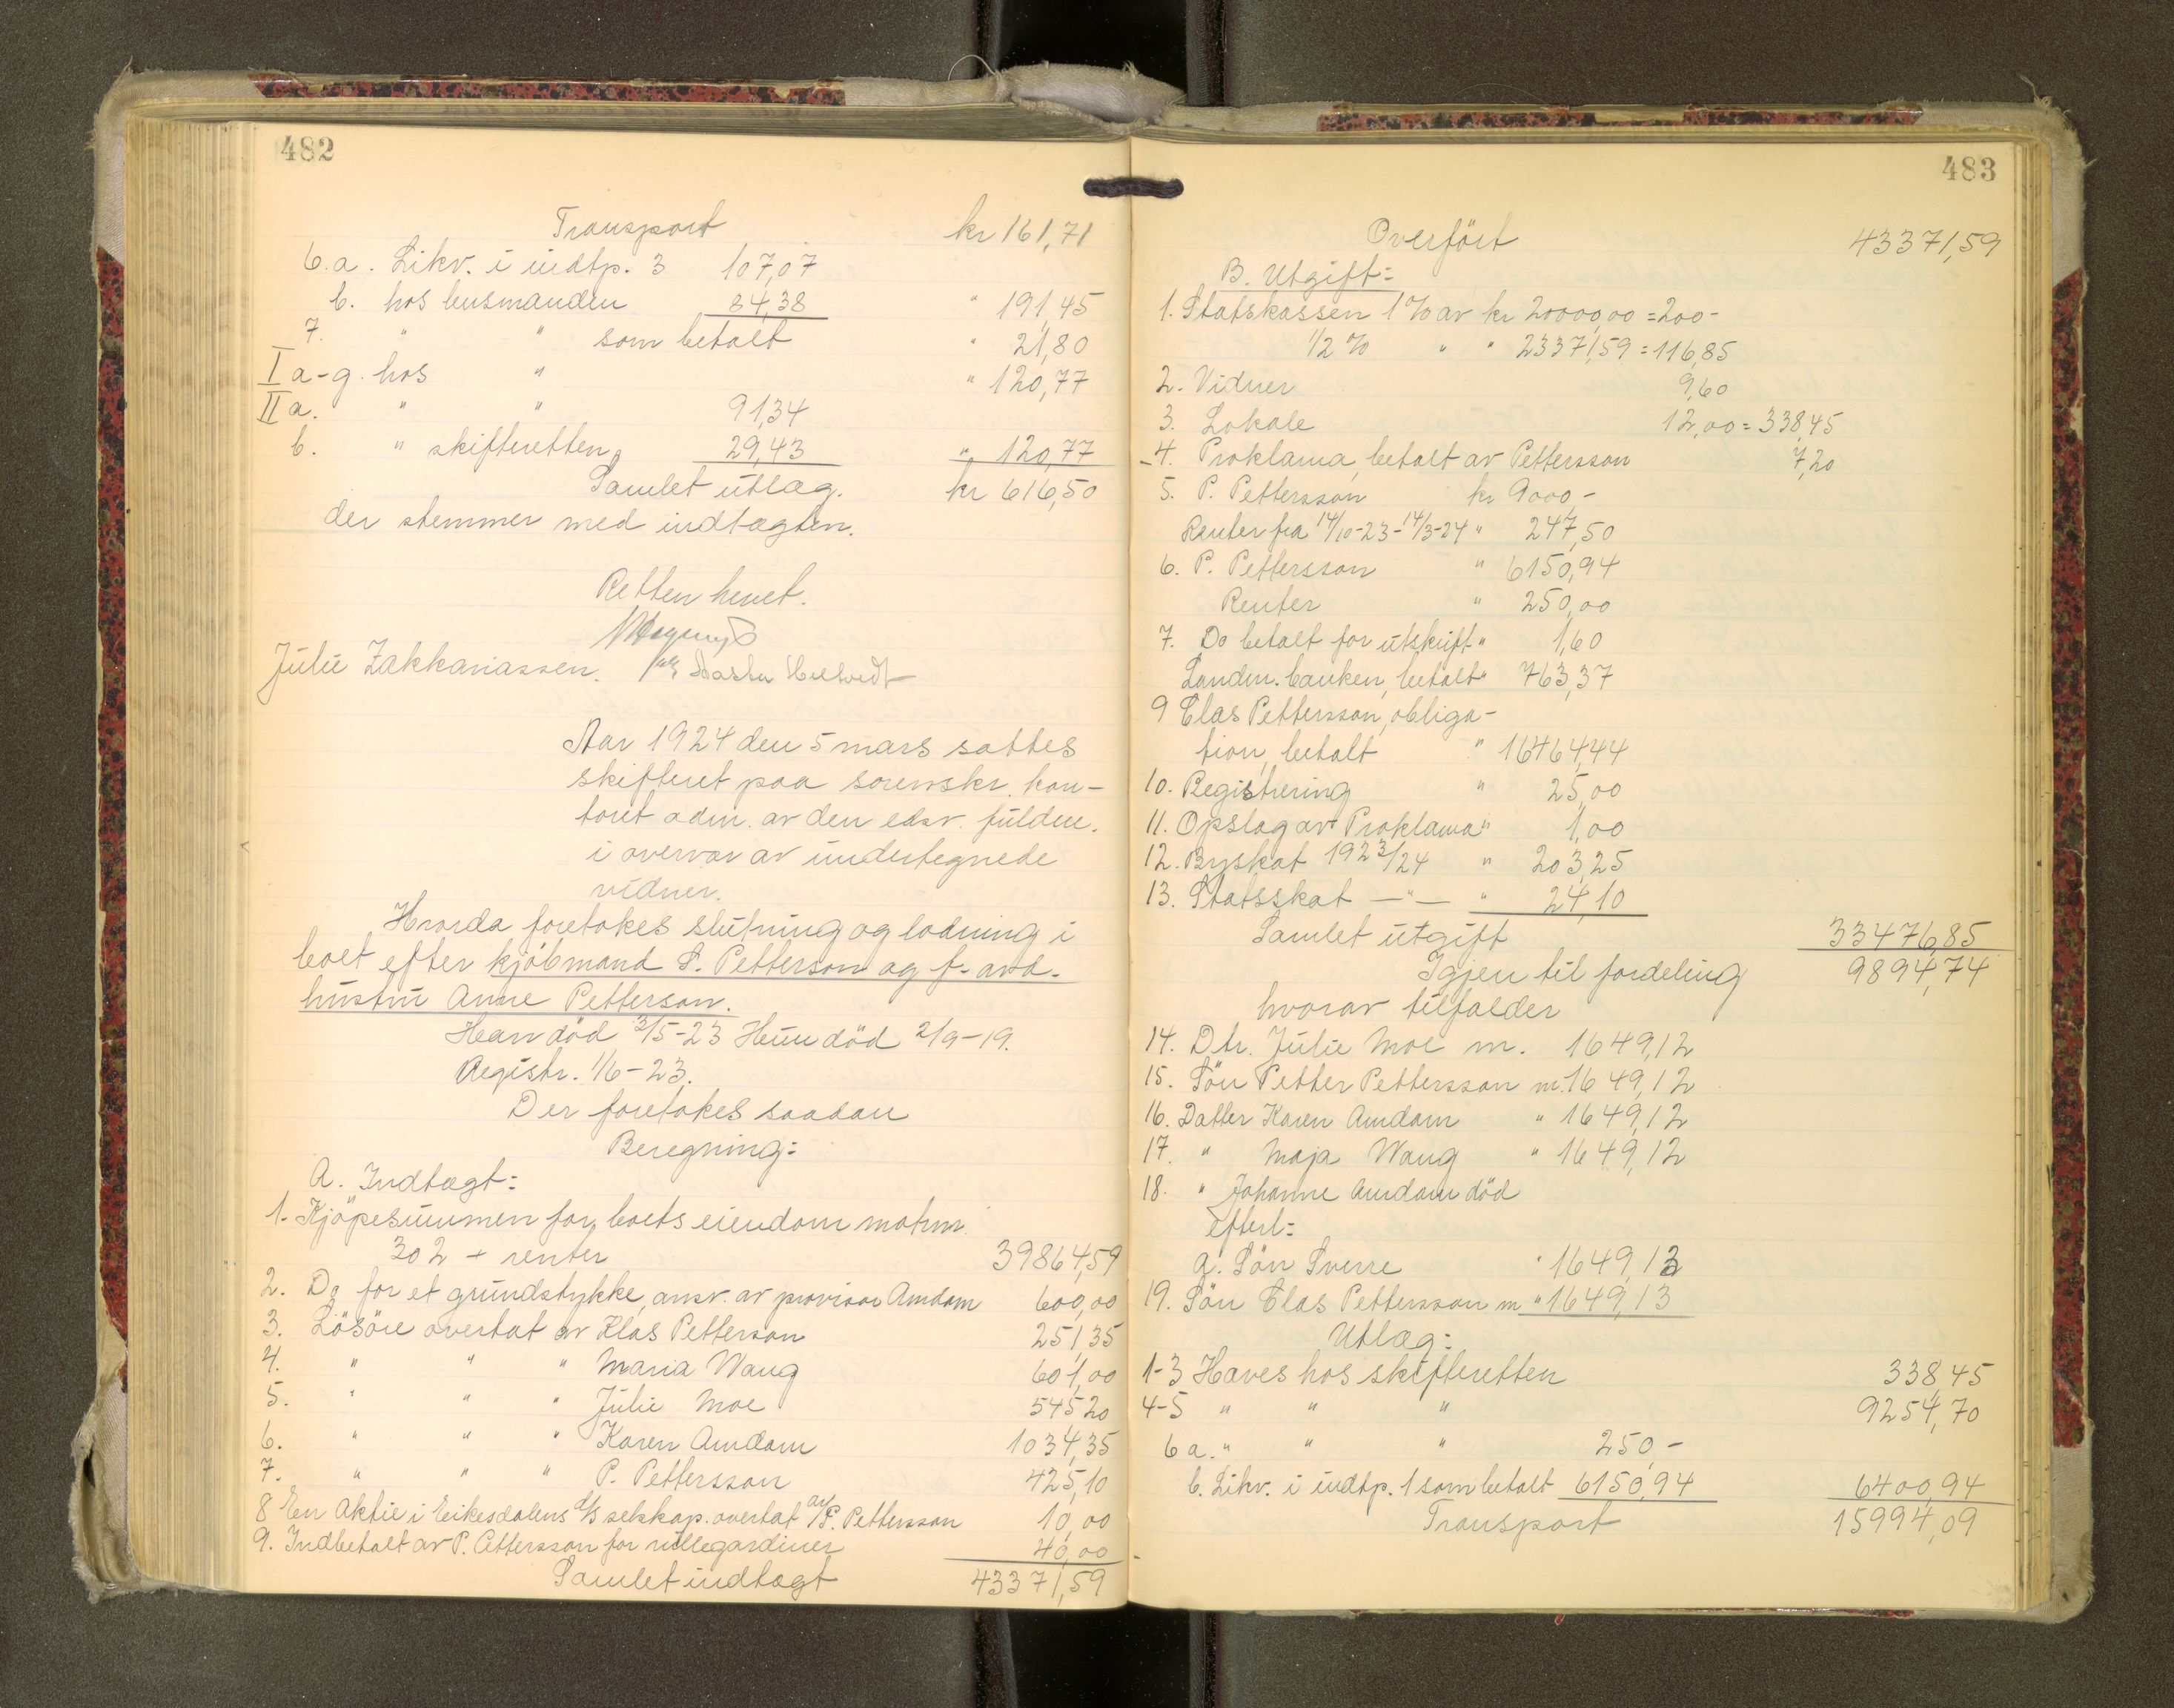 482
Transport kr 161,71
6.a. Likv. i indtp. 3 107,07
b. hos lensmanden 84,38 " 191,45
7. " " som betalt " 21,80
I a-g. hos " " 120,77
II a. " " 91,34
b. " skifteretten 29,43 " 120,77
Samlet utlæg. kr 616,50
der stemmer med indtægten.
Retten hevet.
Julie Zakkariassen.
Aar 1924 den 5 mars sattes
skifteret paa sorenskr. kon-
toret adm. av den edsv. fuldm.
i overvær av undertegnede
vidner.
Hvorda foretokes slutning og lodning i
boet efter kjöbmand P. Petterson og f. avd.
hustru Anne Petterson.
Han död 3/5-23 Hun död 2/9-19.
Registr. 1/6-23.
Der foretokes saadan
Beregning:
A. Indtægt:
1. Kjöpesummen for boets eiendom matnr.
302 + renter 39864,59
2. Do for et grundstykke, ansv. av provisor Amdam 600,00
3. Lösöre overtat av Klas Petterson 251,35
4. " " " Maria Waug 601,00
5. " " " Julie Moe 545,20
6. " " " Karen Amdam 1034,35
7. " " " P. Pettersson 425,10
8 En Aktie i Eikesdalens A/S selskap. overtat av P. Pettersson 10,00
9. Indbetalt av P. Pettersson for rullegardiner 40,00
Samlet indtægt 43371,59
483
Overfört 43371,59
B. Utgift:
1. Statskassen 1% av kr 20000,00 = 200-
1/2 % " " 23371,59 = 116,85
2. Vidner 9,60
3. Lokale 12,00 = 338,45
4. Proklama, betalt av Pettersson 7,20
5. P. Pettersson kr 9000-
Renter fra 14/10-23-14/3-24 " 247,50
6. P. Pettersson " 6150,94
Renter " 250,00
7. Do betalt for utskrift " 1,60
Landm. banken, betalt " 763,37
9 Clas Pettersson, obliga-
tion, betalt " 16464,44
10. Registrering " 25,00
11. Opslag av Proklama " 1,00
12. Byskat 1923/24 " 203,25
13. Statsskat —"— " 24,10
Samlet utgift 33476,85
Igjen til fordeling 9894,74
hvorav tilfalder
14. Dtr. Julie Moe m. 1649,12
15. Sön Petter Pettersson m. 1649,12
16. Datter Karen Amdam " 1649,12
17. " Maja Waug " 1649,12
18. " Johanne Amdam död
efterl:
a. Sön Sverre " 1649,13
19. Sön Clas Pettersson m. " 1649,13
Utlæg:
1-3 Haves hos skifteretten 338,45
4-5 " " " 9254,70
6 a. " " " 250,-
b. Likv. i indtp. 1 som betalt 6150,94 6400,94
Transport 15994,09